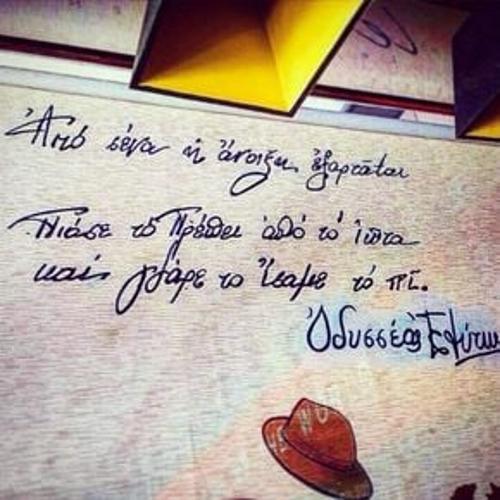 Ἀπό σένα ἡ ἄνοιξη ἐξαρτᾶται
Πιάσε τό Πρέπει ἀπό τό ἰῶτα
καί γδάρε το ἴσαμε τό πῖ.
Ὀδυσσέας